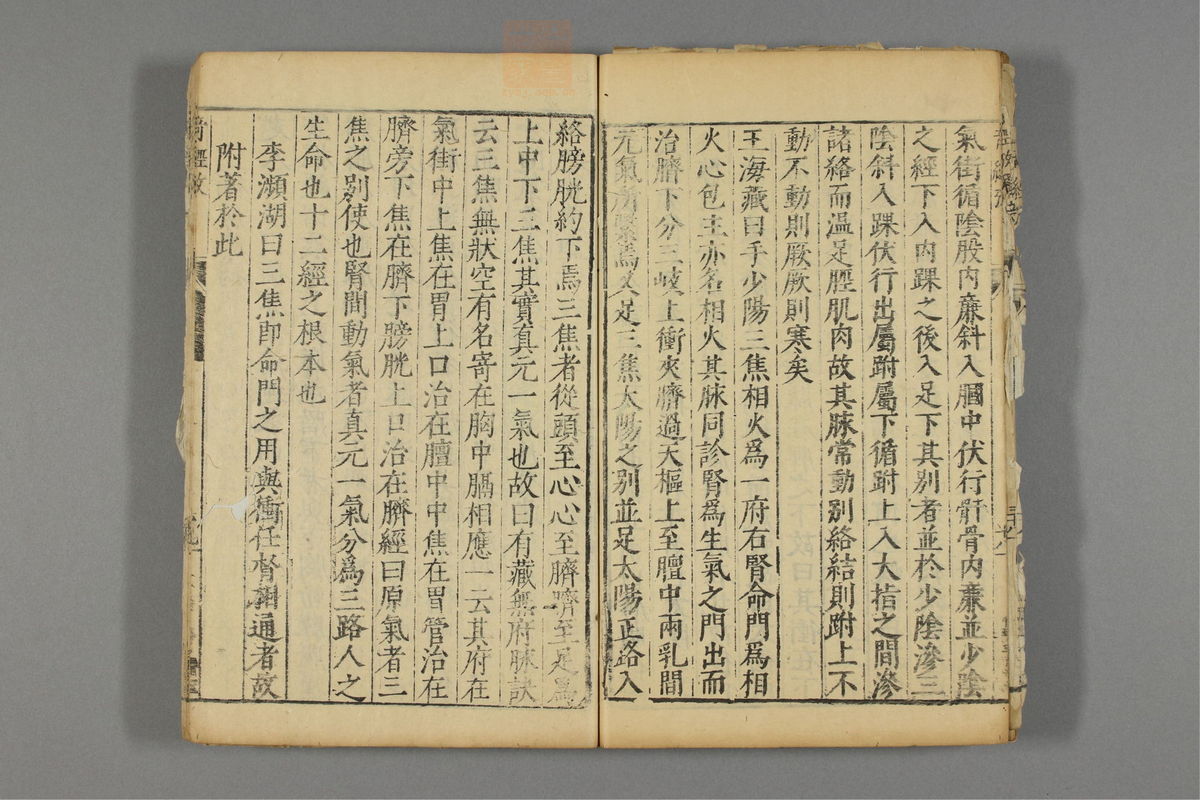 氣街循陰股內廉斜入膕中伏行骭骨內廉並少陰
之經下入內踝之後入足下其別者並於少陰滲三
陰斜入踝伏行出屬跗屬下循跗上入大指之間滲
諸絡而温足脛肌肉故其脉常動別絡結則跗上不
動不動則厥厥則寒矣
王海藏曰手少陽三焦相火爲一府右腎命門爲相
火心包主亦名相火其脉同診腎爲生氣之門出而
治臍下分三岐上衝夾臍過天樞上至膻中兩乳間
元氣所繫焉又足三焦太陽之別並足太陽正路入
絡膀胱約下焉三焦者從頭至心心至臍臍至足爲
上中下三焦其實真元一氣也故曰有藏無府脉訣
云三焦無狀空有名寄在胸中膈相應一云其府在
氣街中上焦在胃上口治在膻中中焦在胃管治在
臍旁下焦在臍下膀胱上口治在臍經曰原氣者三
焦之別使也腎間動氣者真元一氣分爲三路人之
生命也十二經之根本也
李瀕湖曰三焦即命門之用與衝任督相通者故
附著於此
奇經攷